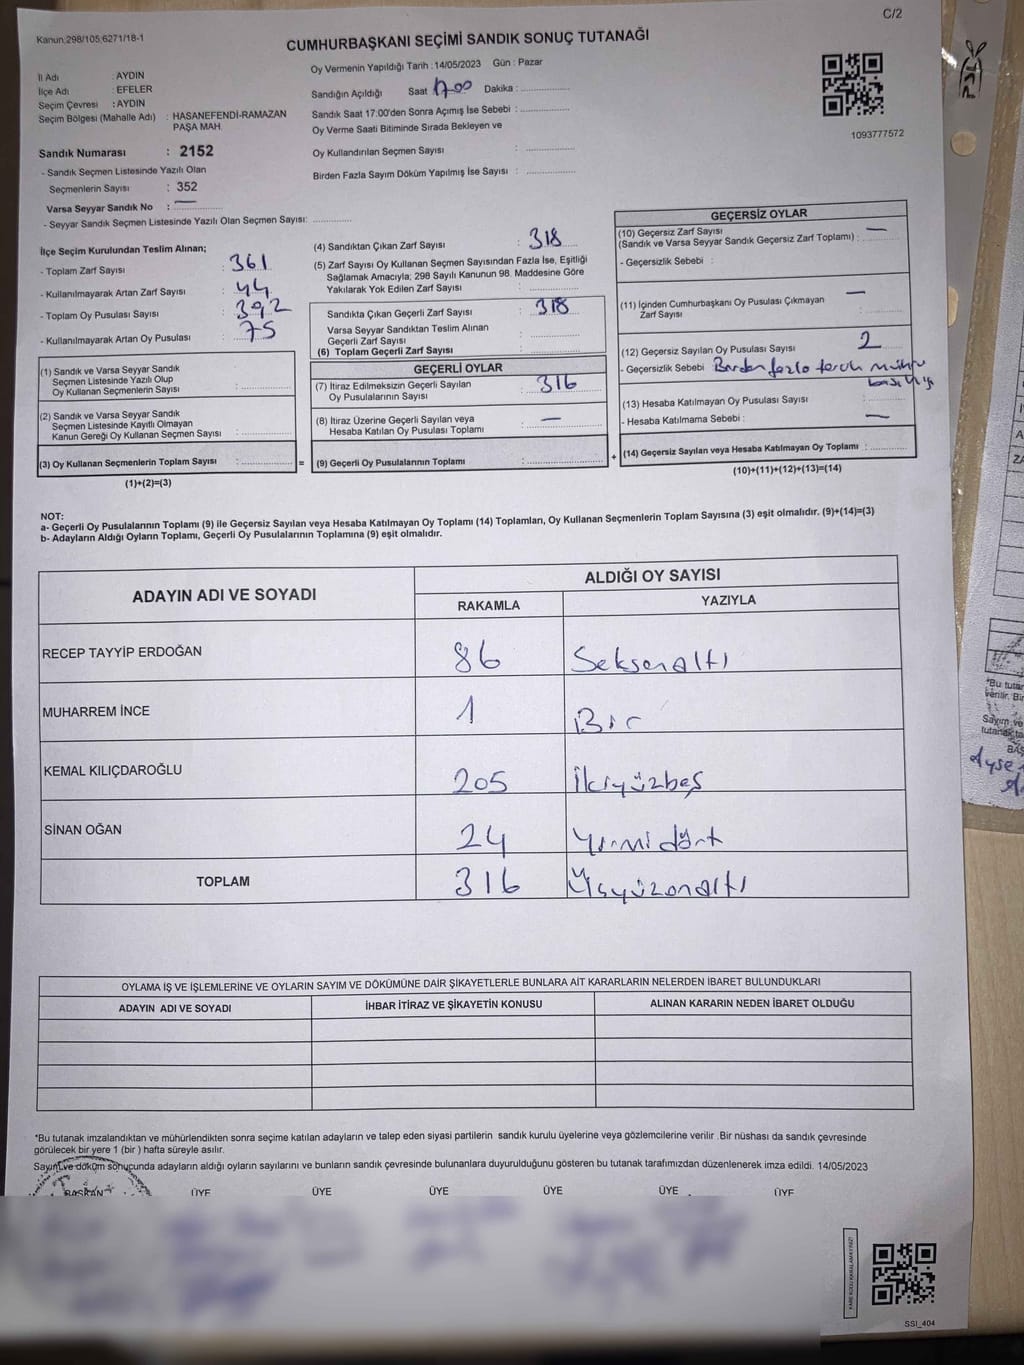 C/2
Kanun 298/105;6271/18-1
CUMHURBAŞKANI SEÇİMİ SANDIK SONUÇ TUTANAĞI
İl Adı : AYDIN
İlçe Adı : EFELER
Seçim Çevresi : AYDIN
Seçim Bölgesi (Mahalle Adı) : HASANEFENDİ-RAMAZAN
PAŞA MAH.
Sandık Numarası : 2152
- Sandık Seçmen Listesinde Yazılı Olan
Seçmenlerin Sayısı : 352
Varsa Seyyar Sandık No : —
- Seyyar Sandık Seçmen Listesinde Yazılı Olan Seçmen Sayısı: ..............
Oy Vermenin Yapıldığı Tarih : 14/05/2023 Gün : Pazar
Sandığın Açıldığı Saat 17.00 Dakika : ..............
Sandık Saat 17:00'den Sonra Açımış İse Sebebi : ..............
Oy Verme Saati Bitiminde Sırada Bekleyen ve
Oy Kullandırılan Seçmen Sayısı : ..............
Birden Fazla Sayım Döküm Yapılmış İse Sayısı : ..............
1093777572
İlçe Seçim Kurulundan Teslim Alınan;
- Toplam Zarf Sayısı : 361
- Kullanılmayarak Artan Zarf Sayısı : 44
- Toplam Oy Pusulası Sayısı : 392
- Kullanılmayarak Artan Oy Pusulası : 75
(1) Sandık ve Varsa Seyyar Sandık
Seçmen Listesinde Yazılı Olup
Oy Kullanan Seçmenlerin Sayısı : ..............
(2) Sandık ve Varsa Seyyar Sandık
Seçmen Listesinde Kayıtlı Olmayan
Kanun Gereği Oy Kullanan Seçmen Sayısı : ..............
(3) Oy Kullanan Seçmenlerin Toplam Sayısı : ..............
(1)+(2)=(3)
(4) Sandıktan Çıkan Zarf Sayısı : 318
(5) Zarf Sayısı Oy Kullanan Seçmen Sayısından Fazla İse, Eşitliği
Sağlamak Amacıyla; 298 Sayılı Kanunun 98. Maddesine Göre
Yakılarak Yok Edilen Zarf Sayısı : ..............
Sandıkta Çıkan Geçerli Zarf Sayısı : 318
Varsa Seyyar Sandıktan Teslim Alınan
Geçerli Zarf Sayısı : ..............
(6) Toplam Geçerli Zarf Sayısı : ..............
GEÇERLİ OYLAR
(7) İtiraz Edilmeksizin Geçerli Sayılan
Oy Pusulalarının Sayısı : 316
(8) İtiraz Üzerine Geçerli Sayılan veya
Hesaba Katılan Oy Pusulası Toplamı : —
= (9) Geçerli Oy Pusulalarının Toplamı : ..............
GEÇERSİZ OYLAR
(10) Geçersiz Zarf Sayısı
(Sandık ve Varsa Seyyar Sandık Geçersiz Zarf Toplamı) : —
- Geçersizlik Sebebi :
(11) İçinden Cumhurbaşkanı Oy Pusulası Çıkmayan
Zarf Sayısı : —
(12) Geçersiz Sayılan Oy Pusulası Sayısı : 2
- Geçersizlik Sebebi : Birden fazla tercih mührü
basılmış
(13) Hesaba Katılmayan Oy Pusulası Sayısı : ..............
- Hesaba Katılmama Sebebi : —
+ (14) Geçersiz Sayılan veya Hesaba Katılmayan Oy Toplamı : ..............
(10)+(11)+(12)+(13)=(14)
NOT:
a- Geçerli Oy Pusulalarının Toplamı (9) ile Geçersiz Sayılan veya Hesaba Katılmayan Oy Toplamı (14) Toplamları, Oy Kullanan Seçmenlerin Toplam Sayısına (3) eşit olmalıdır. (9)+(14)=(3)
b- Adayların Aldığı Oyların Toplamı, Geçerli Oy Pusulalarının Toplamına (9) eşit olmalıdır.
ADAYIN ADI VE SOYADI ALDIĞI OY SAYISI
RAKAMLA YAZIYLA
RECEP TAYYİP ERDOĞAN 86 Seksenaltı
MUHARREM İNCE 1 Bir
KEMAL KILIÇDAROĞLU 205 İkiyüzbeş
SİNAN OĞAN 24 Yirmidört
TOPLAM 316 Üçyüzonaltı
OYLAMA İŞ VE İŞLEMLERİNE VE OYLARIN SAYIM VE DÖKÜMÜNE DAİR ŞİKAYETLERLE BUNLARA AİT KARARLARIN NELERDEN İBARET BULUNDUKLARI
ADAYIN ADI VE SOYADI İHBAR İTİRAZ VE ŞİKAYETİN KONUSU ALINAN KARARIN NEDEN İBARET OLDUĞU
*Bu tutanak imzalandıktan ve mühürlendikten sonra seçime katılan adayların ve talep eden siyasi partilerin sandık kurulu üyelerine veya gözlemcilerine verilir .Bir nüshası da sandık çevresinde
görülecek bir yere 1 (bir ) hafta süreyle asılır.
Sayım ve döküm sonucunda adayların aldığı oyların sayılarını ve bunların sandık çevresinde bulunanlara duyurulduğunu gösteren bu tutanak tarafımızdan düzenlenerek imza edildi. 14/05/2023
BAŞKAN ÜYE ÜYE ÜYE ÜYE ÜYE ÜYE
SSI_404
*Bu tutan
verilir. Bir
Sayım ve
tutanak ta
BAŞ
Ayşe